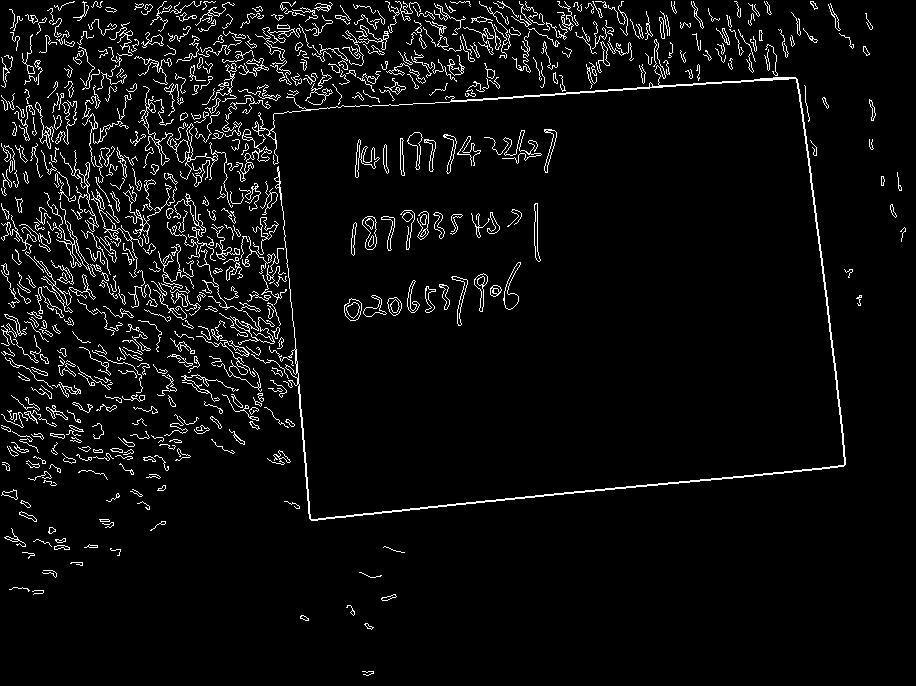 1411977422627
18798354521
0206537906